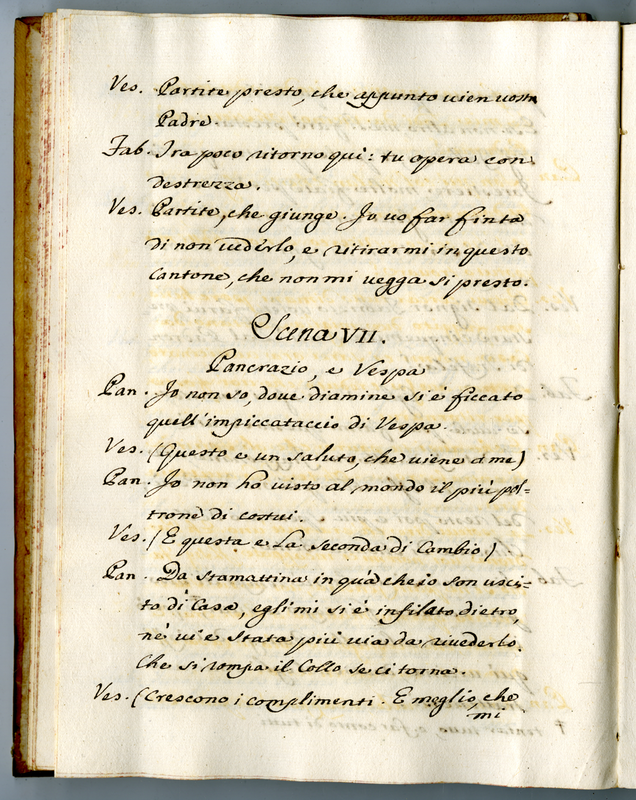 Ves. Partite presto, che appunto vien vostro
Padre.
Fab. Tra poco ritorno qui: tu opera con
destrezza.
Ves. Partite, che giunge. Io vo far finta
di non vederlo, e ritirarmi in questo
Cantone, che non mi vegga si presto.
Scena VII.
Pancrazio, e Vespa
Pan. Io non so, dove diamine si è ficcato
quell'impiccataccio di Vespa.
Ves. (Questo e un saluto, che viene a me)
Pan. Io non ho visto al mondo il più pol=
trone di costui.
Ves. (E questa e la seconda di Cambio.)
Pan. Da stamattina in quà che io son usci=
to di Casa, egli mi si è infilato dietro,
nè vi è stata più via da rivederlo.
Che si rompa il Collo se ci torna.
Ves. (Crescono i complimenti. E meglio, che
mi